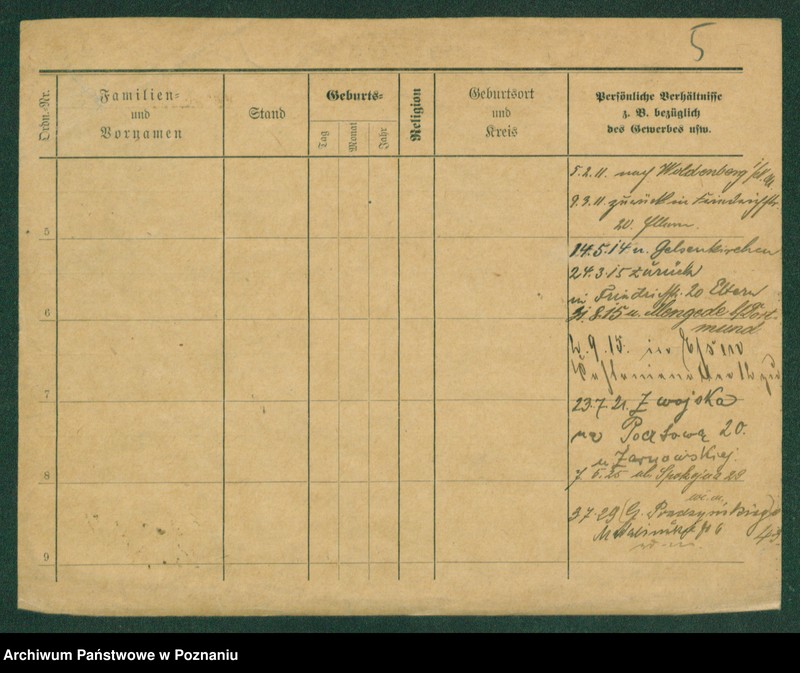 5
Ordn.-Nr.
Familien-
und
Vornamen
Stand
Geburts-
Tag
Monat
Jahr
Religion
Geburtsort
und
Kreis
Persönliche Verhältnisse
z. B. bezüglich
des Gewerbes usw.
5.2.11. nach Woldenberg
9.3.11. zurück in Friedrichstr.
20.
5
14.5.14 n. Gelsenkirchen
24.3.15 zurück
in Friedrichstr. 20 Eltern
6
31.8.15 n. Mengede b/Dort-
mund
2.9.15. in Essen
7
23.7.21. Z wojska
na Pocztową 20.
u
8
7 6.25 ul. Spokojna 28
3.7.29 (G.
43
9
Archiwum Państwowe w Poznaniu